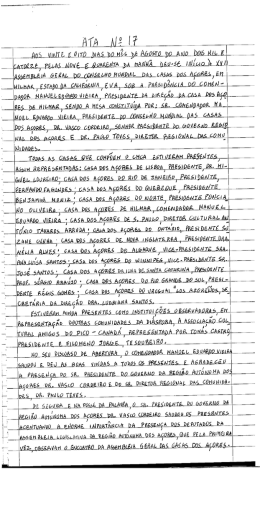 ATA Nº 17
AOS VINTE E OITO DIAS DO MÊS DE AGOSTO DO ANO DOIS MIL E
CATORZE, PELAS NOVE E QUARENTA DA MANHÃ DEU-SE INÍCIO À XVII
ASSEMBLEIA GERAL DO CONSELHO MUNDIAL DAS CASAS DOS AÇORES, EM
HILMAR, ESTADO DA CALIFORNIA, EUA, SOB A PRESIDÊNCIA DO COMEN-
DADOR MANUEL EDUARDO VIEIRA, PRESIDENTE DA DIREÇÃO DA CASA DOS AÇO
RES DE HILMAR, SENDO A MESA CONSTITUÍDA POR: SR. COMENDADOR MA-
NUEL EDUARDO VIEIRA, PRESIDENTE DO CONSELHO MUNDIAL DAS CASAS
DOS AÇORES, DR. VASCO CORDEIRO, SENHOR PRESIDENTE DO GOVERNO REGIO
NAL DOS AÇORES E DR. PAULO TEVES, DIRETOR REGIONAL DAS COMU
NIDADES.
TODAS AS CASAS QUE COMPÕEM O CMCA ESTIVERAM PRESENTES,
ASSIM REPRESENTADAS: CASA DOS AÇORES DE LISBOA, PRESIDENTE, DR. MI-
GUEL LOUREIRO; CASA DOS AÇORES DO RIO DE JANEIRO, PRESIDENTE,
FERNANDO FAGUNDES; CASA DOS AÇORES DO QUEBEQUE, PRESIDENTE
BENJAMIM MONIZ; CASA DOS AÇORES DO NORTE, PRESIDENTE PONCIA
NO OLIVEIRA; CASA DOS AÇORES DE HILMAR, COMENDADOR MANUEL
EDUARDO VIEIRA; CASA DOS AÇORES DE S. PAULO, DIRETOR CULTURAL AN
TÓNIO TAVARES ARRUDA; CASA DOS AÇORES DO ONTARIO, PRESIDENTE SU
ZANE CUNHA; CASA DOS AÇORES DE NOVA INGLATERRA, PRESIDENTE DRA.
NÉLIA NUNES; CASA DOS AÇORES DO ALGARVE, VICE-PRESIDENTE DRA.
ANA LUÍSA SANTOS; CASA DOS AÇORES DO WINNIPEG, VICE-PRESIDENTE SR.
JOSÉ SANTOS; CASA DOS AÇORES DA ILHA DE SANTA CATARINA, PRESIDENTE
PROF. SÉRGIO ARAÚJO; CASA DOS AÇORES DO RIO GRANDE DO SUL, PRESI-
DENTE RÉGIS GOMES; CASA DOS AÇORES DO URUGUAI, LOS AZOREÑOS, SE
CRETÁRIA DA DIREÇÃO DRA. LUDIANA SANTOS.
ESTIVERAM AINDA PRESENTES COMO INSTITUIÇÕES OBSERVADORAS, EM
REPRESENTAÇÃO DOUTRAS COMUNIDADES DA DIÁSPORA, A ASSOCIAÇÃO CUL
TURAL AMIGOS DO PICO - CANADÁ, REPRESENTADA POR TOMÁS CASTRO,
PRESIDENTE E FILOMENO JORGE, TESOUREIRO.
NO SEU DISCURSO DE ABERTURA, O COMENDADOR MANUEL EDUARDO VIEIRA
SAUDOU E DEU AS BOAS VINDAS A TODOS OS PRESENTES E AGRADECEU
A PRESENÇA DO SR. PRESIDENTE DO GOVERNO DA REGIÃO AUTÓNOMA DOS
AÇORES, DR. VASCO CORDEIRO E DO SR. DIRETOR REGIONAL DAS COMUNIDA-
DES, DR. PAULO TEVES.
DE SEGUIDA E NA POSSE DA PALAVRA, O SR. PRESIDENTE DO GOVERNO DA
REGIÃO AUTÓNOMA DOS AÇORES DR. VASCO CORDEIRO SAUDOU OS PRESENTES
ACENTUANDO A ENORME IMPORTÂNCIA DA PRESENÇA DOS DEPUTADOS DA
ASSEMBLEIA LEGISLATIVA DA REGIÃO AUTÓNOMA DOS AÇORES, QUE PELA PRIMEIRA
VEZ, OBSERVAM O ENCONTRO DA ASSEMBLEIA GERAL DAS CASAS DOS AÇORES.